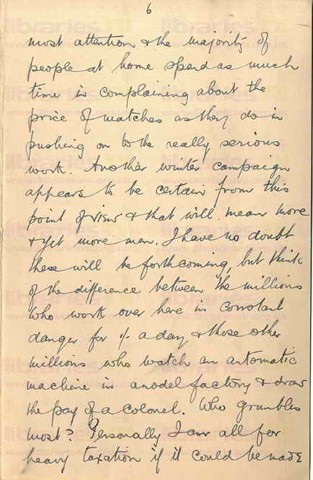 6
most attention & the majority of
people at home spend as much
time in complaining about the
price of matches as they do in
pushing on to the really serious
work. Another winter campaign
appears to be certain from this
point of view & that will mean more
& yet more men. I have no doubt
these will be forthcoming, but think
of the difference between the millions
who work over here in constant
danger for 1/- a day & those other
millions who watch an automatic
machine in a model factory & draw
the pay of a colonel. Who grumbles
most? Personally I am all for
heavy taxation if it could be made